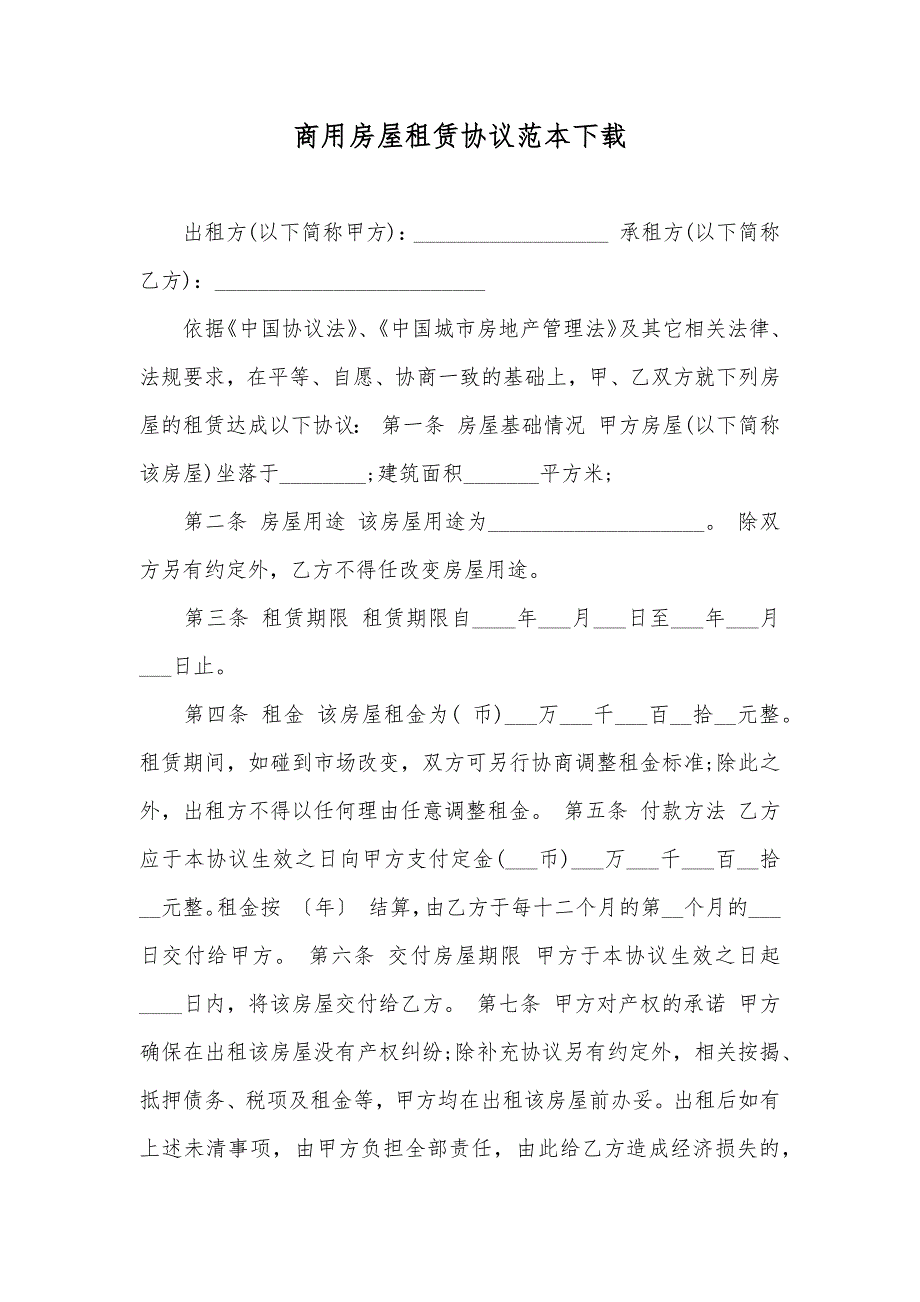 商用房屋租赁协议范本下载
出租方(以下简称甲方)：__________________ 承租方(以下简称
乙方)：_________________________
依据《中国协议法》、《中国城市房地产管理法》及其它相关法律、
法规要求，在平等、自愿、协商一致的基础上，甲、乙双方就下列房
屋的租赁达成以下协议： 第一条 房屋基础情况 甲方房屋(以下简称
该房屋)坐落于________;建筑面积_______平方米;
第二条 房屋用途 该房屋用途为____________________。 除双
方另有约定外，乙方不得任改变房屋用途。
第三条 租赁期限 租赁期限自____年___月___日至___年___月
___日止。
第四条 租金 该房屋租金为( 币)___万___千___百__拾__元整。
租赁期间，如碰到市场改变，双方可另行协商调整租金标准;除此之
外，出租方不得以任何理由任意调整租金。 第五条 付款方法 乙方
应于本协议生效之日向甲方支付定金(___币)___万___千___百__拾
__元整。租金按 〔年〕 结算，由乙方于每十二个月的第__个月的___
日交付给甲方。 第六条 交付房屋期限 甲方于本协议生效之日起
____日内，将该房屋交付给乙方。 第七条 甲方对产权的承诺 甲方
确保在出租该房屋没有产权纠纷;除补充协议另有约定外，相关按揭、
抵押债务、税项及租金等，甲方均在出租该房屋前办妥。出租后如有
上述未清事项，由甲方负担全部责任，由此给乙方造成经济损失的，